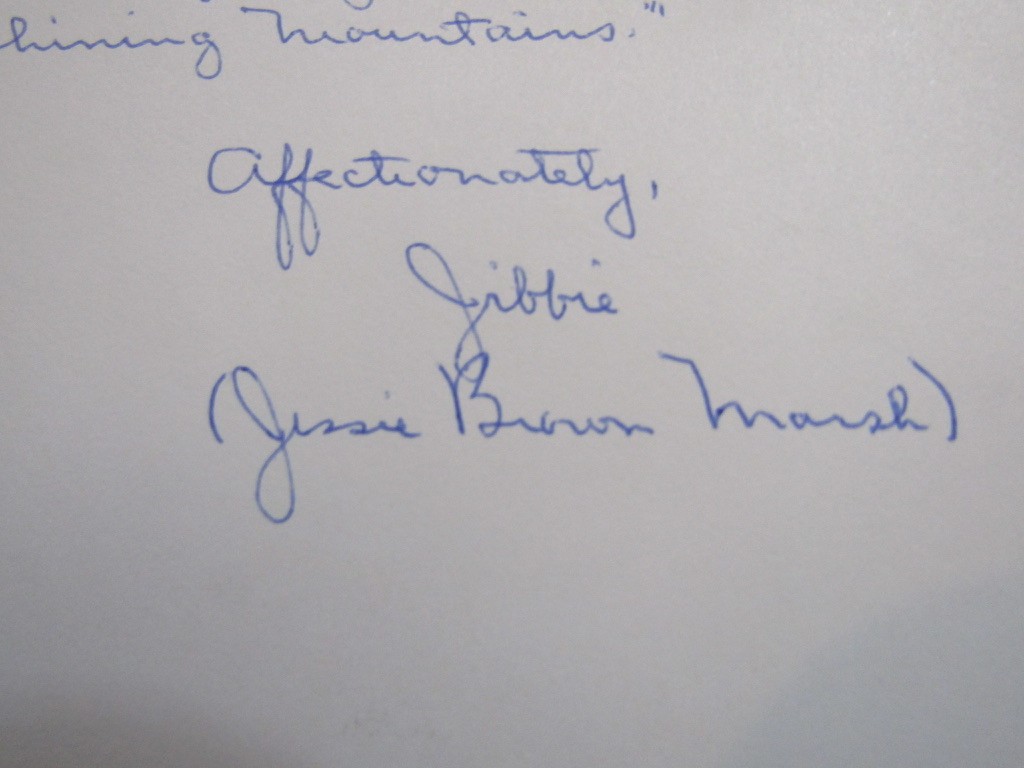 hining Mountains."'
Affectionately,
Jibbie
(Jessie Brown Marsh)